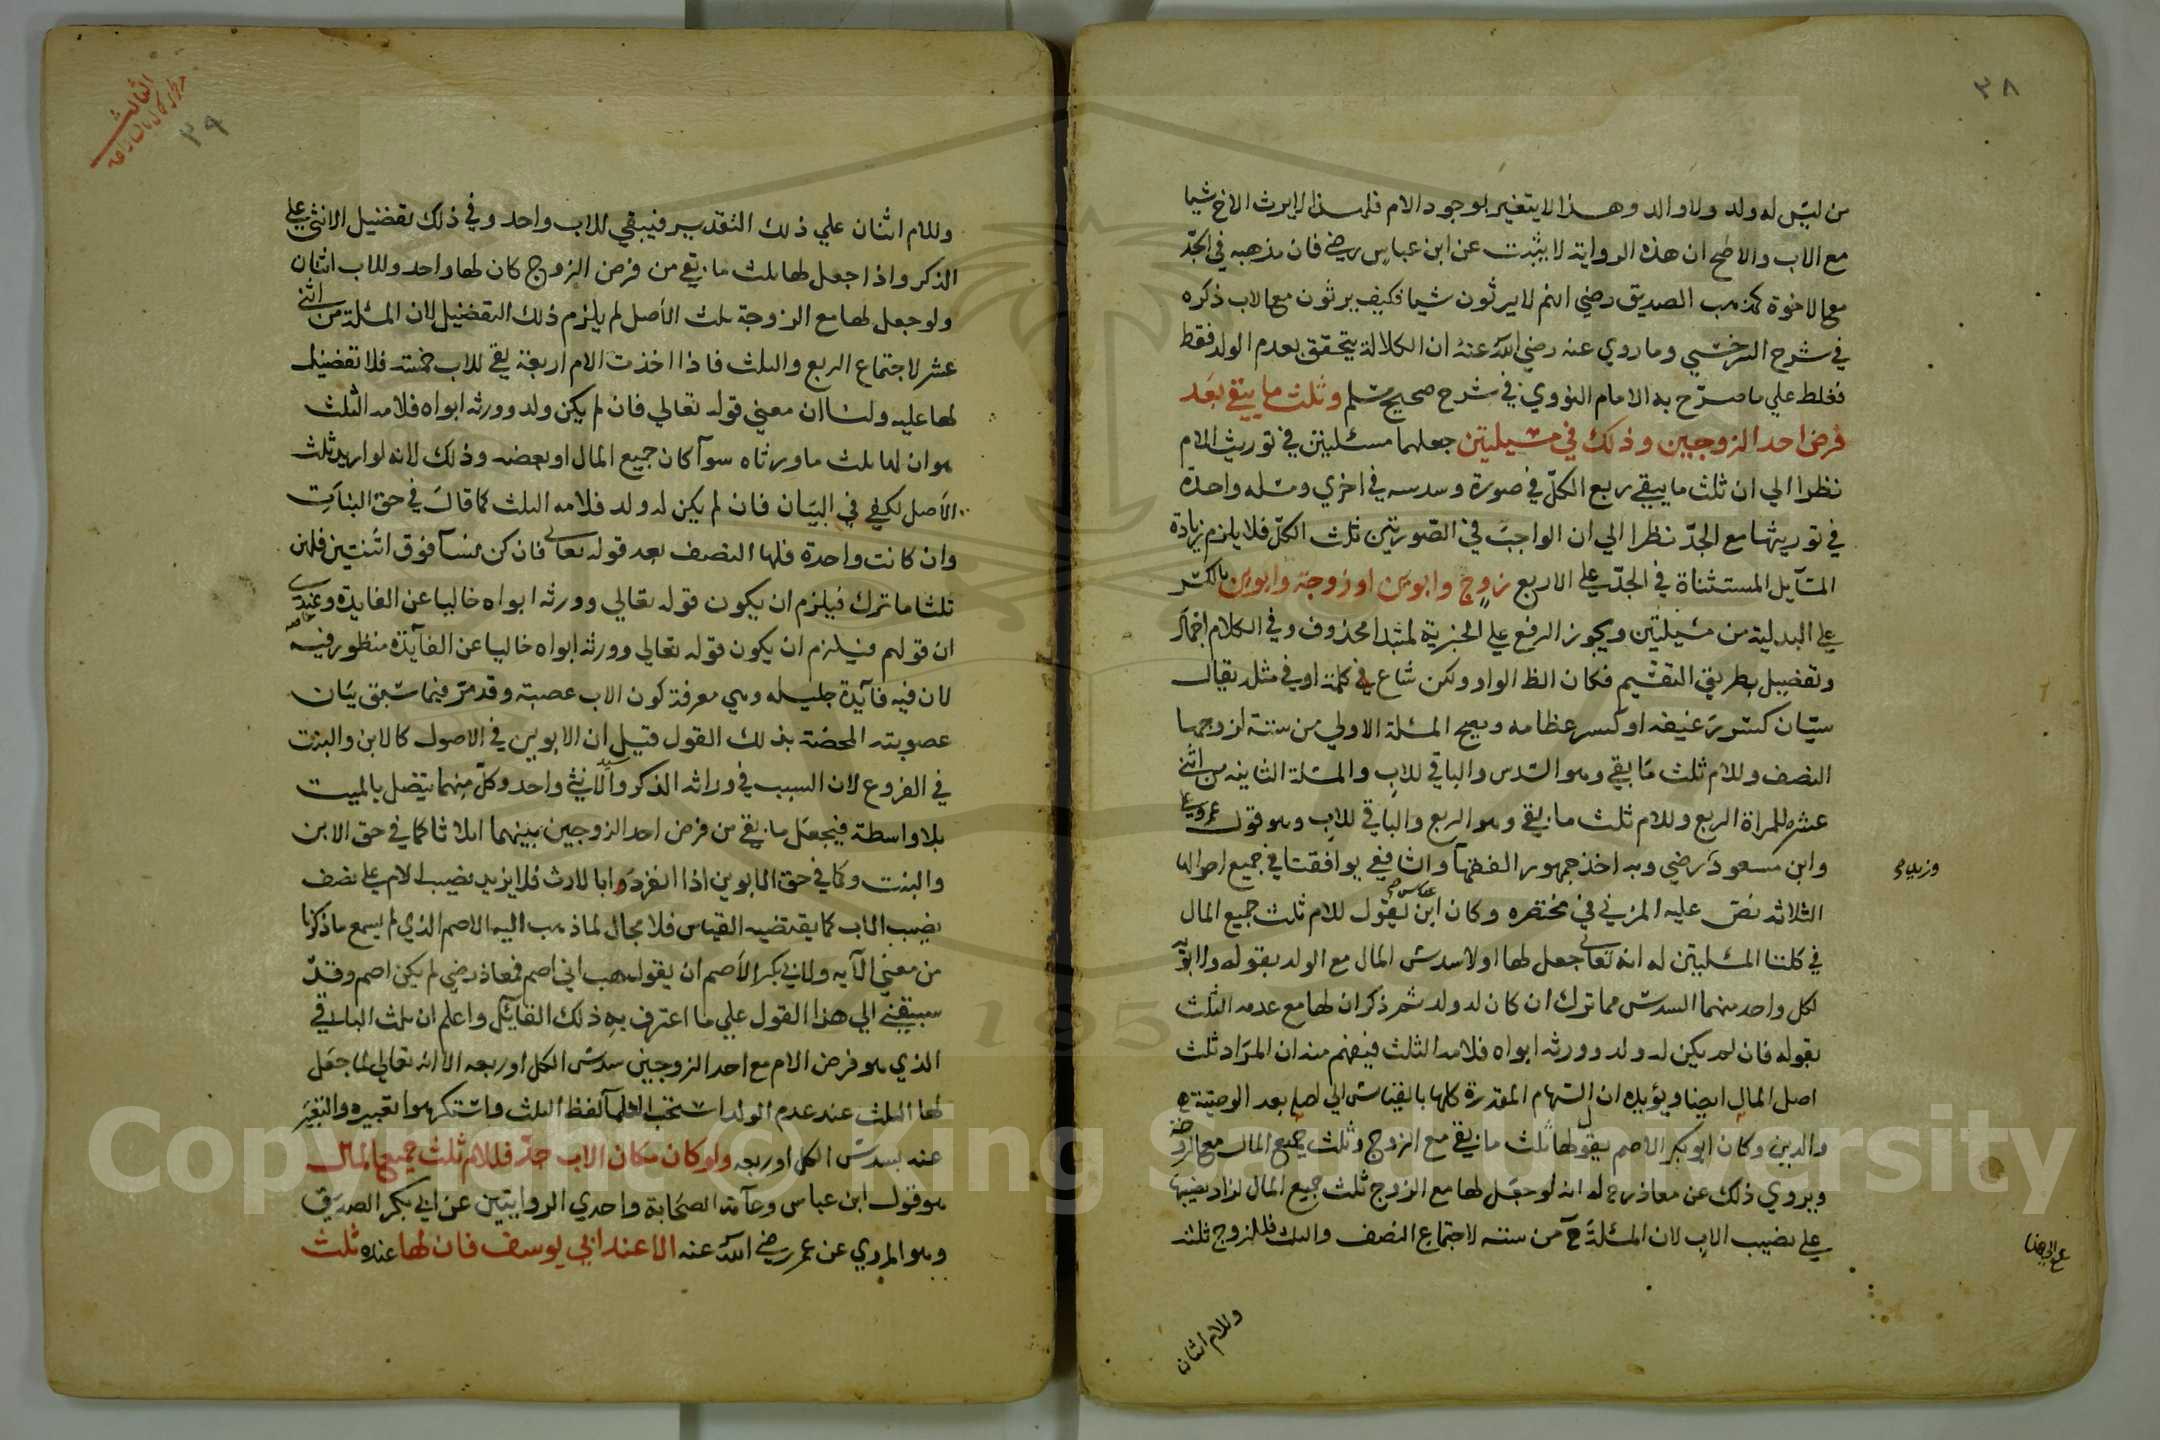 ٣٨
من ليس له ولد ولا والد وهذا لا يتغير بوجود الام فلهذا لا يرث الاخ شيا
مع الاب والاصح ان هذه الرواية لا يثبت عن ابن عباس رضي فان مذهبه في الجد
مع الاخوة كمذهب الصديق رضي انهم لا يرثون شيا فكيف يرثون مع الاب ذكره
في شرح السرخسي وما روي عنه رضي الله عنه ان الكلالة يتحقق بعدم الولد فقط
فغلط علي ما صرح به الامام النووي في شرح صحيح مسلم وثلث ما يبقي بعد
فرض احد الزوجين وذلك في مسيلتين جعلهما مسئلتين في توريث الام
نظرا الي ان ثلث ما يبقي ربع الكل في صورة وسدسه في اخري ومسله واحدة
في توريثها مع الجد نظرا الي ان الواجب في الصورتين ثلث الكل فلا يلزم زيادة
المسآيل المستثناة في الجد علي الاربع زوج وابوين او زوجة وابوين بالكسر
علي البدلية من مسيلتين ويجوز الرفع علي الخبرية لمبتدا محذوف وفي الكلام اجمال
وتفصيل بطريق التقسيم فكان الظ الواو ولكن شاع في كلمة او في مثله يقال
سيان كسر رغيفه او كسر عظامه ويصح المسئلة الاولي من ستة لزوجها
النصف وللام ثلث ما بقي وهو السدس والباقي للاب والمسئلة الثانيه من اثني
عشره للمراة الربع وللام ثلث ما بقي وهو الربع والباقي للاب وهو قول عمر وعلي
وابن مسعود رضي وبه اخذ جمهور الفقهآ والشافعي يوافقنا في جميع احوالها
وزيد
الثلاثه نص عليه المزني في مختصره وكان ابن عباس رضي يقول للام ثلث جميع المال
في كلتا المسئلتين له انه تعالي جعل لها اولا سدس المال مع الولد بقوله ولابويه
لكل واحد منهما السدس مما ترك ان كان له ولد ثم ذكر ان لها مع عدمه الثلث
بقوله فان لم يكن له ولد وورثه ابواه فلامه الثلث فيفهم منه ان المراد ثلث
اصل المال ايضا ويؤيده ان السهام المقدرة كلها بالقياس الي اصله بعد الوصية
والدين وكان ابو بكر الاصم يقول لها ثلث ما بقي مع الزوج وثلث جميع المال مع الزوجة
ويروي ذلك عن معاذ رح له انه لو جعل لها مع الزوج ثلث جميع المال لزاد نصيبها
علي نصيب الاب لان المسئلة ح من ستة لاجتماع النصف والثلث فللزوج ثلثه
وللام اثنان
الثالث
٣٩
وللام اثنان علي ذلك التقدير فيبقي للاب واحد وفي ذلك تفضيل الانثي علي
الذكر واذا جعل لها ثلث ما بقي من فرض الزوج كان لها واحد وللاب اثنان
ولو جعل لها مع الزوجة ثلث الاصل لم يلزم ذلك التفضيل لان المسئلة من اثني
عشر لاجتماع الربع والثلث فاذا اخذت الام اربعة بقي للاب خمسة فلا تفضيل
لها عليه ولنا ان معني قوله تعالي فان لم يكن ولد وورثه ابواه فلامه الثلث
هو ان لها ثلث ما ورثاه سوآ كان جميع المال او بعضه وذلك لانه لو اريد ثلث
الاصل لكفي في البيان فان لم يكن له ولد فلامه الثلث كما قال في حق البنات
وان كانت واحدة فلها النصف بعد قوله تعالي فان كن نسآ فوق اثنتين فلهن
ثلثا ما ترك فيلزم ان يكون قوله تعالي وورثه ابواه خاليا عن الفايدة وعندي
ان قولهم فيلزم ان يكون قوله تعالي وورثه ابواه خاليا عن الفآيدة منظور فيه
لان فيه فآيدة جليله وهي معرفة كون الاب عصبة وقد مر فيما سبق بيان
عصوبته المحضة بذلك القول قيل ان الابوين في الاصول كالابن والبنت
في الفروع لان السبب في وراثة الذكر والانثي واحد وكل منهما يتصل بالميت
بلا واسطة فيجعل ما بقي من فرض احد الزوجين بينهما اثلاثا كما في حق الابن
والبنت وكما في حق الابوين اذا انفردوا بالارث فلا يزيد نصيب الام علي نصف
نصيب الاب كما يقتضيه القياس فلا مجال لما ذهب اليه الاصم الذي لم يسمع ما ذكرنا
من معني الآيه ولابي بكر الاصم ان يقول هب اني اصم فمعاذ رضي لم يكن اصم وقد
سبقني الي هذا القول علي ما اعترف به ذلك القآيل واعلم ان ثلث الباقي
الذي هو فرض الام مع احد الزوجين سدس الكل او ربعه الا انه تعالي لما جعل
لها الثلث عند عدم الولد استحب العلمآ لفظ الثلث واستكرهوا تغييره والتعبير
عنه بسدس الكل او ربعه ولو كان مكان الاب جد فللام ثلث جميع المال
هو قول ابن عباس وعآمة الصحابة واحدي الروايتين عن ابي بكر الصديق
وهو المروي عن عمر رضي الله عنه الا عند ابي يوسف فان لها عنده ثلث
Copyright © King Saud University
1957